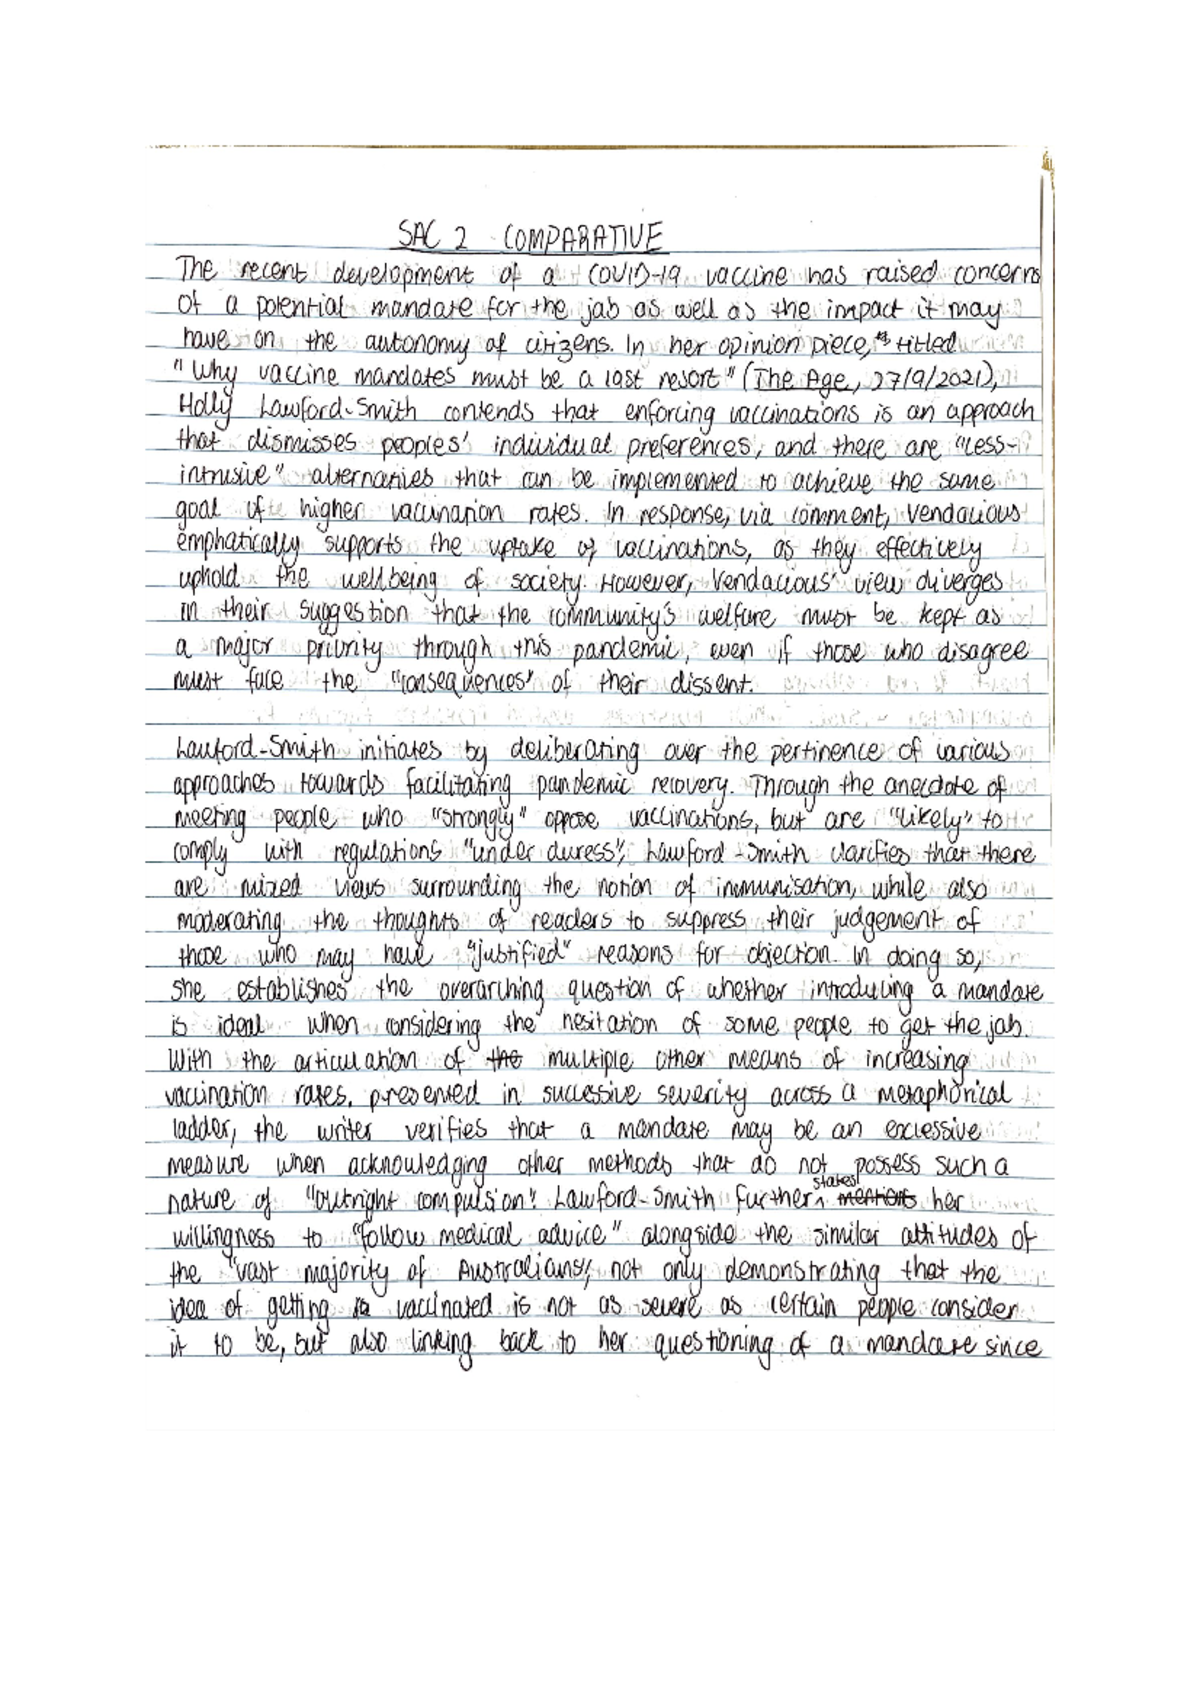 SAC 2 COMPARATIVE
The recent development of a COVID-19 vaccine has raised concerns
of a potential mandate for the jab as well as the impact it may
have on the autonomy of citizens. In her opinion piece, titled
"Why vaccine mandates must be a last resort" (The Age, 27/9/2021),
Holly Lawford-Smith contends that enforcing vaccinations is an approach
that dismisses peoples' individual preferences, and there are "less-
intrusive" alternatives that can be implemented to achieve the same
goal of higher vaccination rates. In response, via comment, Vendacious
emphatically supports the uptake of vaccinations, as they effectively
uphold the wellbeing of society. However, Vendacious' view diverges
in their suggestion that the community's welfare must be kept as
a major priority through this pandemic, even if those who disagree
must face the "consequences" of their dissent.
Lawford-Smith initiates by deliberating over the pertinence of various
approaches towards facilitating pandemic recovery. Through the anecdote of
meeting people who "strongly" oppose vaccinations, but are "likely" to
comply with regulations "under duress", Lawford-Smith clarifies that there
are mixed views surrounding the notion of immunisation, while also
moderating the thoughts of readers to suppress their judgement of
those who may have "justified" reasons for objection. In doing so,
she establishes the overarching question of whether introducing a mandate
is ideal when considering the hesitation of some people to get the jab.
With the articulation of the multiple other means of increasing
vaccination rates, presented in successive severity across a metaphorical
ladder, the writer verifies that a mandate may be an excessive
measure when acknowledging other methods that do not possess such a
nature of "outright compulsion". Lawford-Smith further states mentions her
willingness to "follow medical advice" alongside the similar attitudes of
the "vast majority of Australians", not only demonstrating that the
idea of getting vaccinated is not as severe as certain people consider
it to be, but also linking back to her questioning of a mandate since